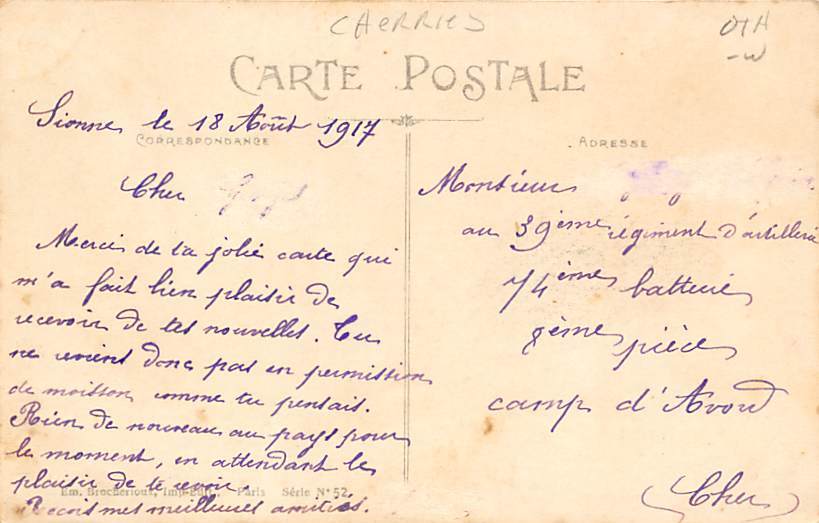 CHERRIES
CARTE POSTALE
Sionne le 18 Août 1917
CORRESPONDANCE
Cher
Merci de ta jolie carte qui
m'a fait bien plaisir de
recevoir de tes nouvelles. Tu
ne reviens donc pas en permission
de moisson comme tu pensais.
Rien de nouveau au pays pour
le moment, en attendant le
plaisir de te revoir.
Em. Brocherioux, Imp-Edit., Paris Série N° 52
Reçois mes meilleures amitiés.
ADRESSE
Monsieur
au 39ème régiment d'artillerie
74ème batterie
8ème pièce
camp d'Avord
(Cher)